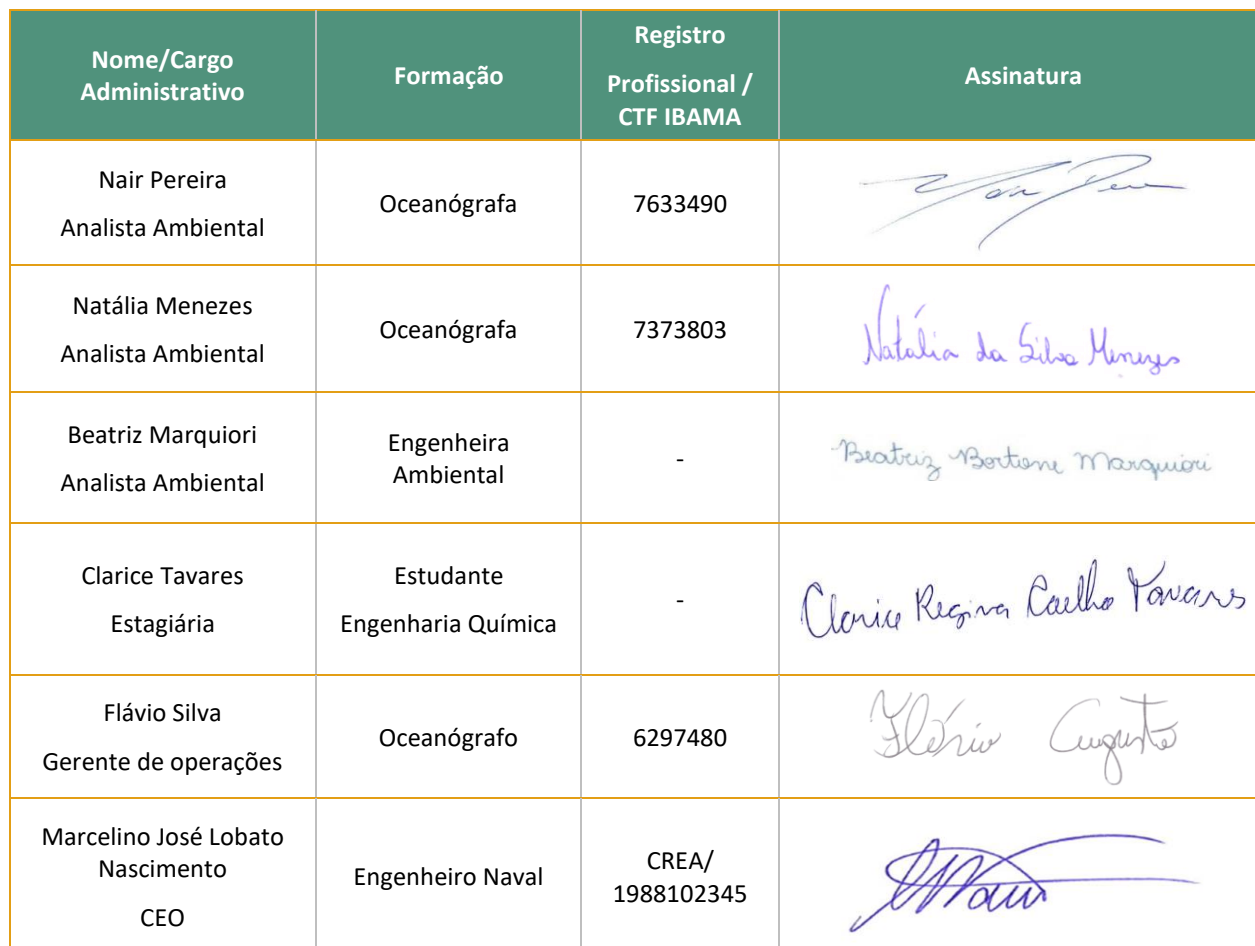 Nome/Cargo
Administrativo
Formação
Registro
Profissional /
CTF IBAMA
Assinatura
Nair Pereira
Analista Ambiental
Oceanógrafa
7633490
Natália Menezes
Analista Ambiental
Oceanógrafa
7373803
Natália da Silva Menezes
Beatriz Marquiori
Analista Ambiental
Engenheira
Ambiental
-
Beatriz Bortione Marquiori
Clarice Tavares
Estagiária
Estudante
Engenharia Química
-
Clarice Regina Coelho Tavares
Flávio Silva
Gerente de operações
Oceanógrafo
6297480
Flávio Augusto
Marcelino José Lobato
Nascimento
CEO
Engenheiro Naval
CREA/
1988102345